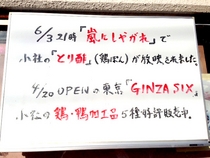 6/3 21時「嵐にしやがれ」で
小社の「とり酢」(鶏ぽん)が放映されました。
4/20 OPENの東京「GINZA SIX」
小社の鶏・鴨加工品5種好評販売中。